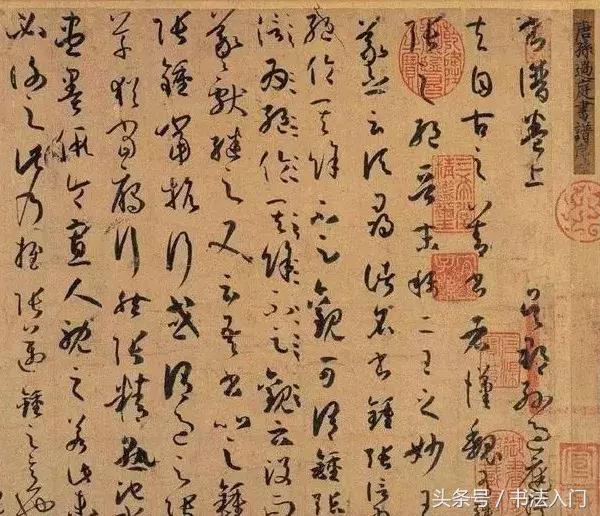 唐孫過庭書譜
書譜卷上 吳郡孫過庭
夫自古之善書者漢魏有
張之絕晉末稱二王之妙王
羲之云頃尋諸名書鍾張信為
絕倫其餘不足觀可謂鍾張
信為絕倫其餘不足觀云沒而
羲獻繼之又云吾書比之鍾
張鍾當抗行或謂過之張
草猶當雁行然張精熟池水
盡墨假令寡人耽之若此未
必謝之此乃推張邁鍾之意
头条号／书法入门